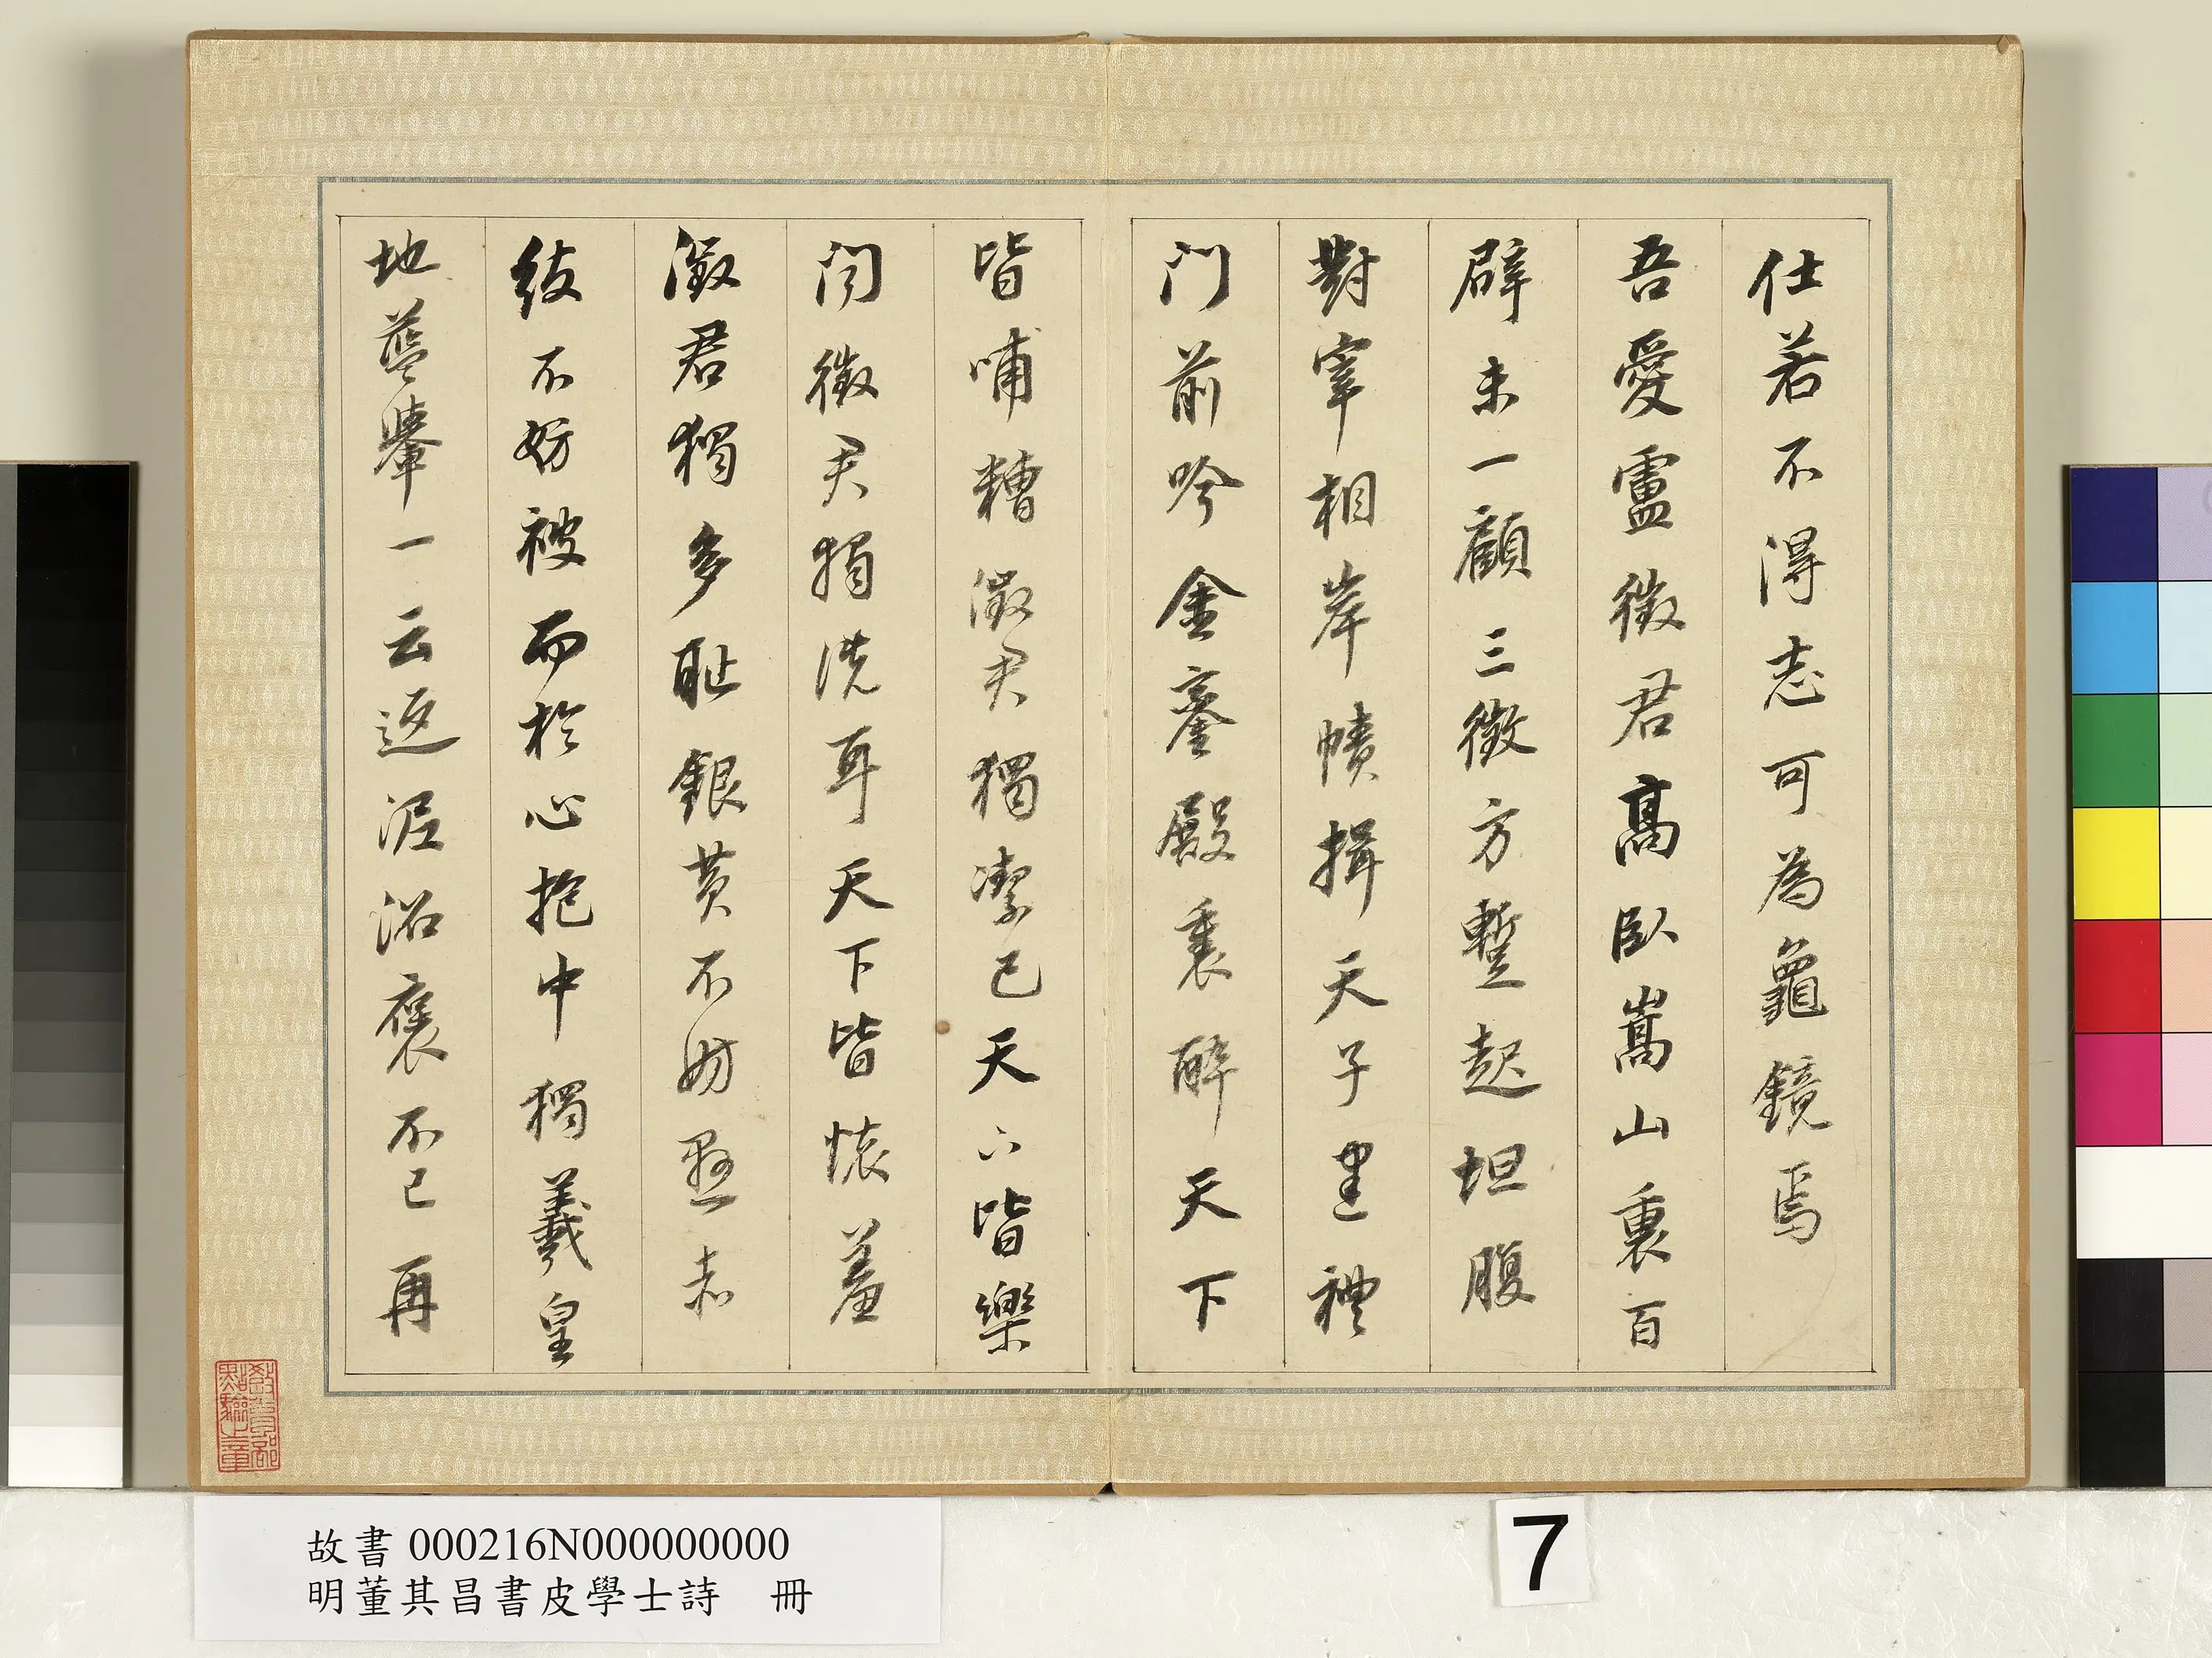 仕若不得志可為龜鏡焉
吾愛盧徵君高臥嵩山裏百
辟未一顧三徵方暫起坦腹
對宰相岸幘揖天子建禮
門前吟金鑾殿裏醉天下
皆哺糟澂君獨潔己天下皆樂
聞徵君獨洗耳天下皆懷羞
澂君獨多耻銀黃不妨懸赤
紱不妨被而於心抱中獨羲皇
地藍轝一云返泥詔褒不已再
故書 000216N000000000
明董其昌書皮學士詩 冊
7